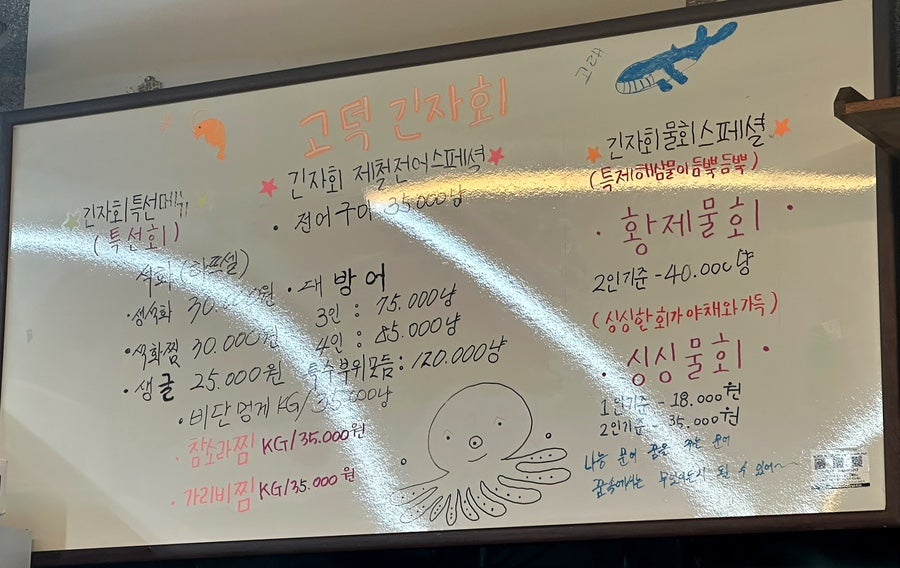 고래
고덕 긴자회
긴자회 특선메뉴
(특선회)
석화 (하프셀)
·생석화 30.000원
·석화찜 30.000원
·생굴 25.000원
·비단멍게 KG/35.000냥
·참소라찜 KG/35.000원
·가리비찜 KG/35.000원
긴자회 제철전어스페셜
·전어구이 35.000냥
·대방어
3인 : 75.000냥
4인 : 85.000냥
특수부위모듬 : 120.000냥
긴자회물회스페셜
(특제해삼물이듬뿍듬뿍)
·황제물회·
2인기준 - 40.000냥
(싱싱한회가야채와가득)
·싱싱물회·
1인기준 - 18.000원
2인기준 - 35.000원
나는 문어 꿈을 꾸는 문어
꿈속에서는 무엇이든지 될 수 있어~